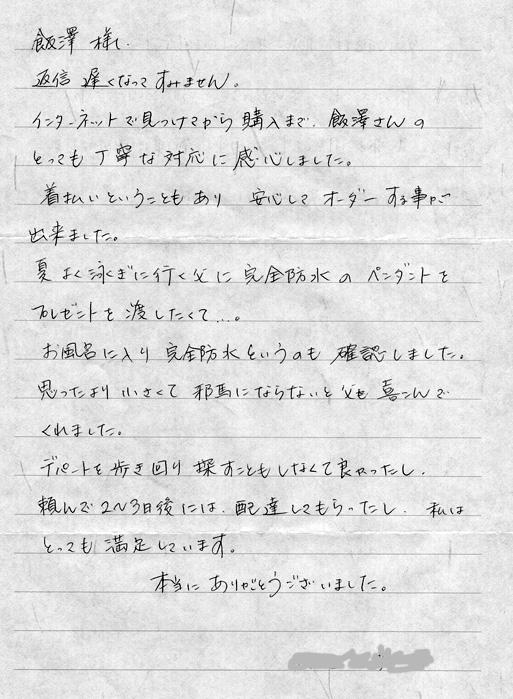 飯澤 様。
返信 遅くなって すみません。
インターネットで見つけてから 購入まで、飯澤さんの
とっても 丁寧な対応に 感心しました。
着払いということもあり 安心して オーダーする事が
出来ました。
夏 よく泳ぎに行く父に 完全防水の ペンダントを
プレゼントを 渡したくて…。
お風呂に入り 完全防水というのも 確認しました。
思ったより 小さくて 邪馬にならないと 父も 喜こんで
くれました。
デパートを歩き回り 探すこともしなくて良かったし、
頼んで 2〜3日後には、配達してもらったし、私は
とっても 満足しています。
本当に ありがとうございました。